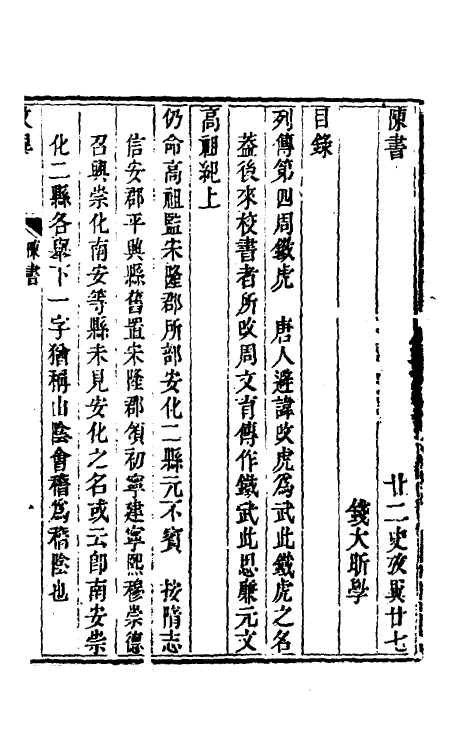 陳書　廿二史攷異廿七
錢大昕學
目錄
列傳第四周鐵虎　唐人避諱改虎爲武此鐵虎之名
葢後來校書者所改周文育傳作鐵武此思廉元文
高祖紀上
仍命高祖監宋隆郡所部安化二縣元不賓　按隋志
信安郡平興縣舊置宋隆郡領初寧建寧熙穆崇德
召興崇化南安等縣未見安化之名或云卽南安崇
化二縣各舉下一字猶稱山陰會稽爲稽陰也
陳書
一